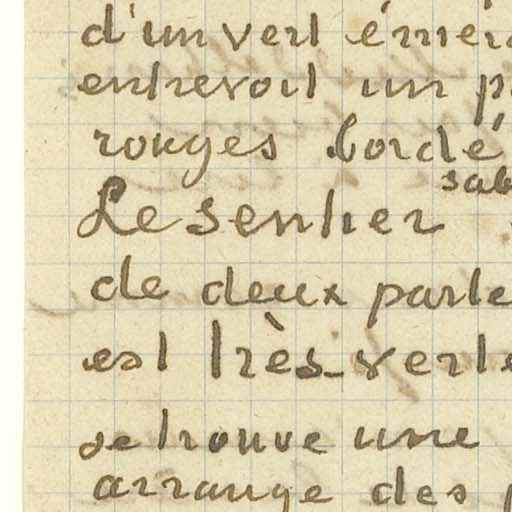 d'un vert émer
entrevoit un p
rouges bordé
sab
Le sentier
de deux parte
est très verte
se trouve une
arrange des p